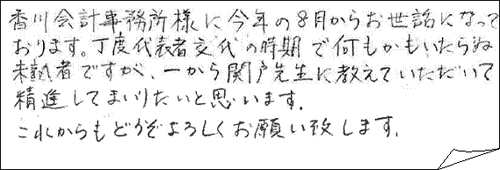 香川会計事務所様に今年の8月からお世話になって
おります。丁度代表者交代の時期で何もかもいたらぬ
未熟者ですが、一から関戸先生に教えていただいて
精進してまいりたいと思います.
これからもどうぞよろしくお願い致します.